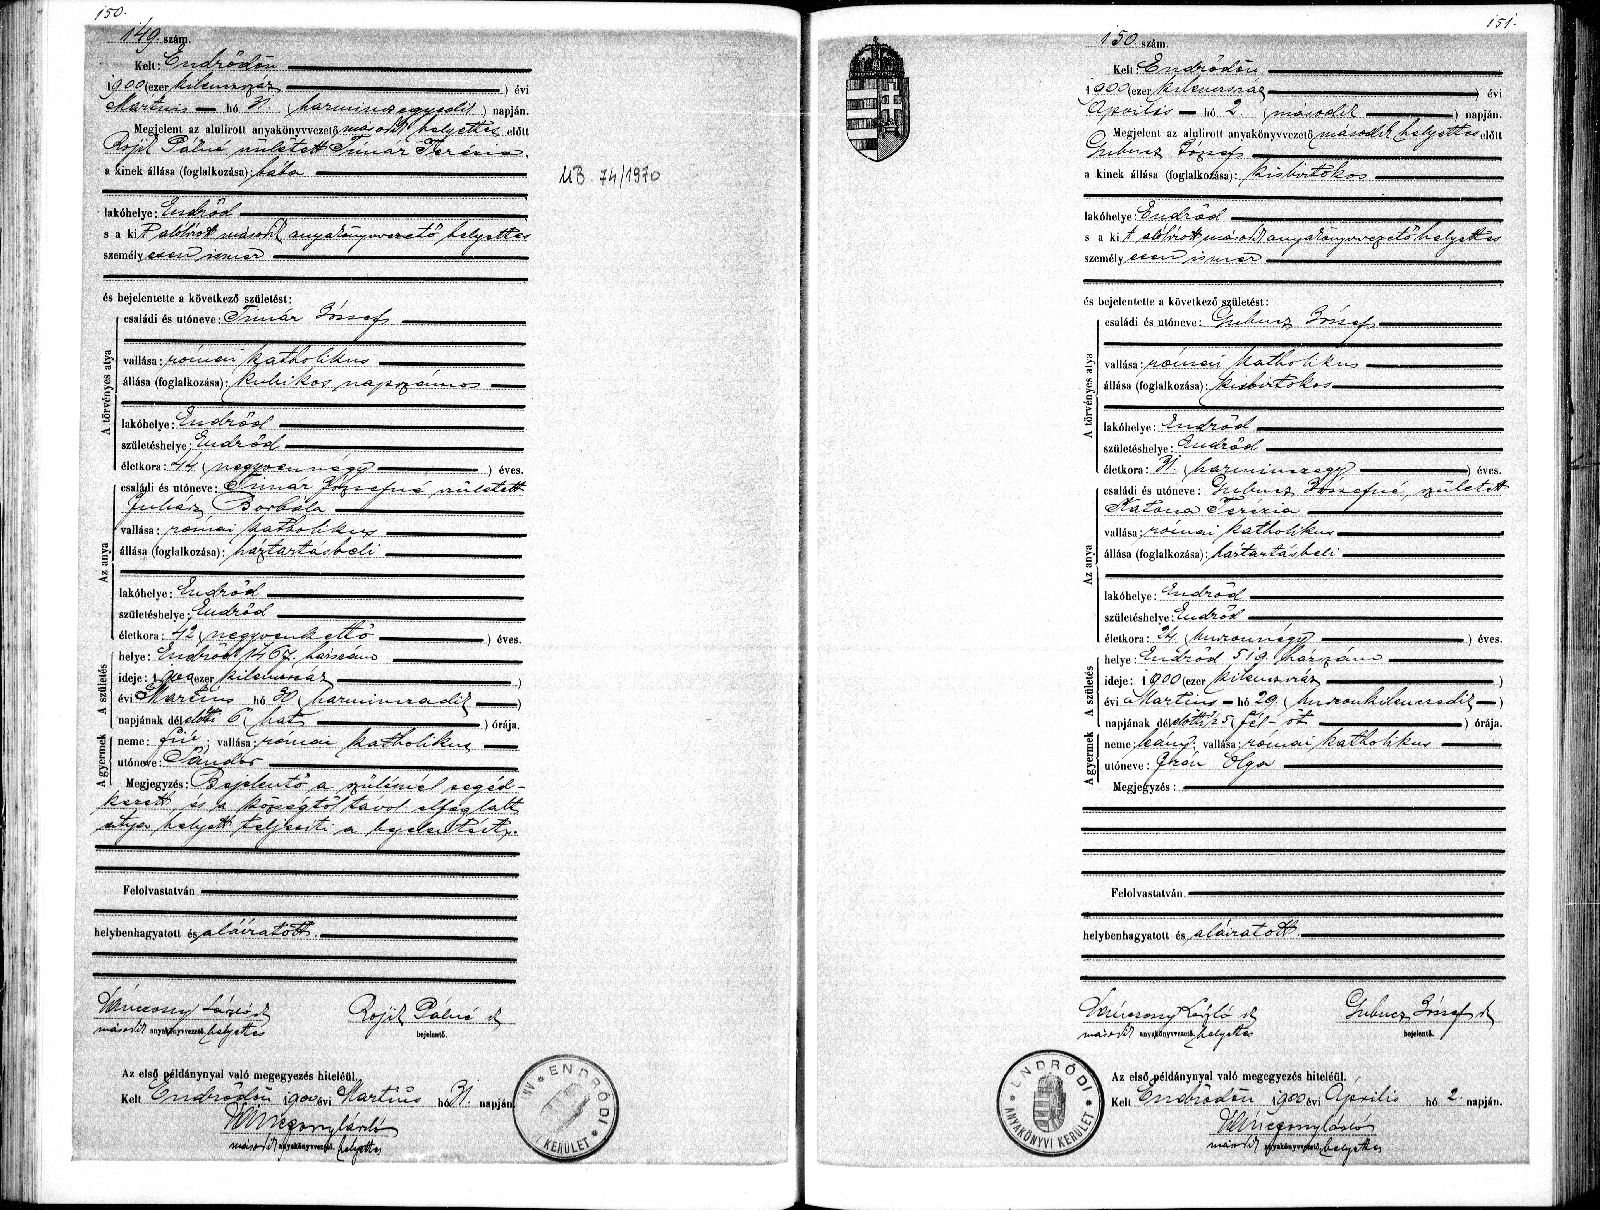 150.
149. szám.
Kelt: Endrődön
1900 (ezer kilenszáz ) évi
Martius hó 31 (harminczegyedik) napján.
Megjelent az alulirott anyakönyvvezető második helyettes előtt
Rojik Pálné született Tímár Terézia.
a kinek állása (foglalkozása): bába
UB. 74/1970
lakóhelye: Endrőd
s a kit alólirott második anyakönyvvezető helyettes
személyesen ismer
és bejelentette a következő születést:
A törvényes atya
családi és utóneve: Tímár József
vallása: római katholikus
állása (foglalkozása): kubikos napszámos
lakóhelye: Endrőd
születéshelye: Endrőd
életkora: 44 (negyvennégy ) éves.
Az anya
családi és utóneve: Tímár Józsefné született
Juhász Borbála
vallása: római katholikus
állása (foglalkozása): háztartásbeli
lakóhelye: Endrőd
születéshelye: Endrőd
életkora: 42 (negyvenkettő ) éves.
A születés
helye: Endrőd 1467. házszám
ideje: 1900 (ezer kilenszáz )
évi Martius hó 30 (harminczadik )
napjának délelőtti 6 (hat ) órája.
A gyermek
neme: fiú; vallása: római katholikus
utóneve: Sándor
Megjegyzés: Bejelentő a szülésnél segéd-
kezett, és a községtől távol elfoglalt
atya helyett teljesiti a bejelentést.
Felolvastatván
helybenhagyatott és aláiratott.
László sk Rojik Pálné sk
második anyakönyvvezető helyettes bejelentő.
Az első példánynyal való megegyezés hiteléül.
Kelt Endrődön 1900 évi Martius hó 31. napján.
László
második anyakönyvvezető helyettes
ENDRŐDI KERÜLET
151.
150. szám.
Kelt Endrődön
1900 (ezer kilenszáz ) évi
Április hó 2 (második ) napján.
Megjelent az alulirott anyakönyvvezető második helyettes előtt
Gubucz József
a kinek állása (foglalkozása): kisbirtokos
lakóhelye: Endrőd
s a kit alólirott második anyakönyvvezető helyettes
személyesen ismer
és bejelentette a következő születést:
A törvényes atya
családi és utóneve: Gubucz József
vallása: római katholikus
állása (foglalkozása): kisbirtokos
lakóhelye: Endrőd
születéshelye: Endrőd
életkora: 31 (harminczegy ) éves.
Az anya
családi és utóneve: Gubucz Józsefné, született
Katona Terezia
vallása: római katholikus
állása (foglalkozása): háztartásbeli
lakóhelye: Endrőd
születéshelye: Endrőd
életkora: 24 (huszonnégy ) éves.
A születés
helye: Endrőd 519. házszám
ideje: 1900 (ezer kilenszáz )
évi Martius hó 29 (huszonkilenczedik )
napjának délelőtti ½5 (fél öt ) órája.
A gyermek
neme: leány; vallása: római katholikus
utóneve: Olga
Megjegyzés:
Felolvastatván
helybenhagyatott és aláiratott.
László sk Gubucz József sk
második anyakönyvvezető helyettes bejelentő.
Az első példánynyal való megegyezés hiteléül.
Kelt Endrődön 1900 évi Április hó 2. napján.
László
második anyakönyvvezető helyettes
ENDRŐDI ANYAKÖNYVI KERÜLET